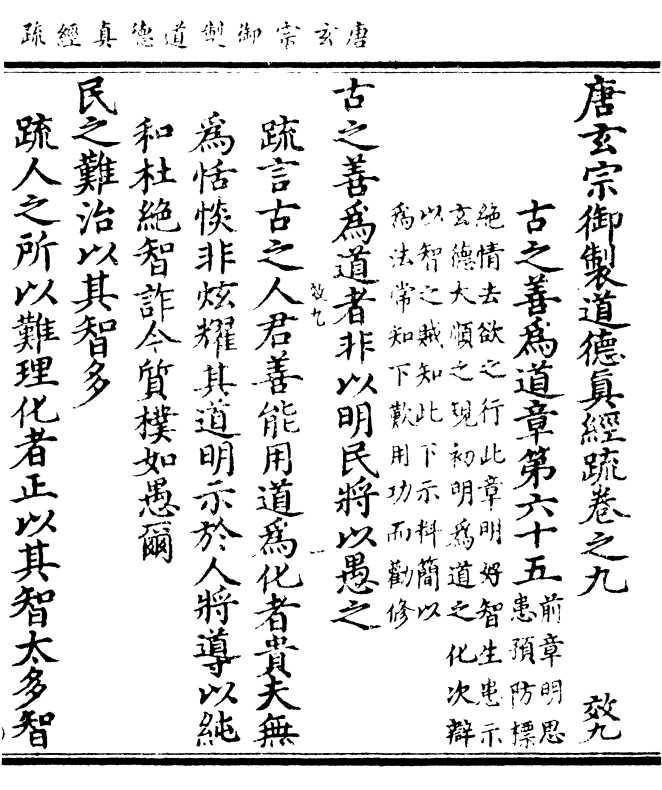 唐玄宗御製道德真經疏
唐玄宗御製道德眞經疏卷之九 效九
古之善爲道章第六十五 前章明思
患預防標
絶情去欲之行此章明好智生患示
玄德大順之現初明爲道之化次辯
以智之越知此下示料簡以
爲法常知下歎用功而勸修
古之善爲道者非以明民將以愚之
效九
疏言古之人君善能用道爲化者貴夫無
爲恬惔非炫耀其道明示於人將導以純
和杜絶智詐令質樸如愚爾
民之難治以其智多
疏人之所以難理化者正以其智太多智